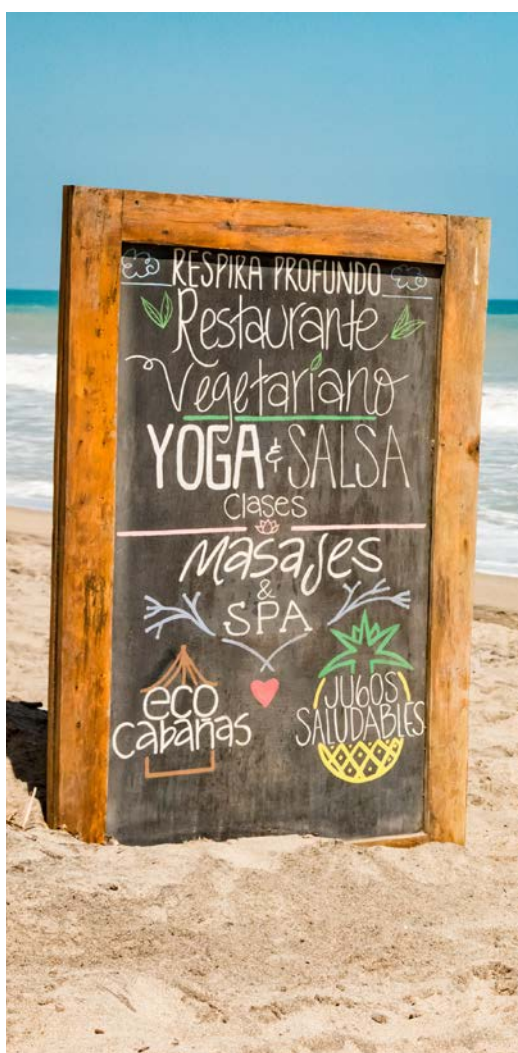 RESPIRA PROFUNDO
Restaurante
Vegetariano
YOGA & SALSA
Clases
Masajes
&
SPA
eco
cabañas
JUGOS
SALUDABLES